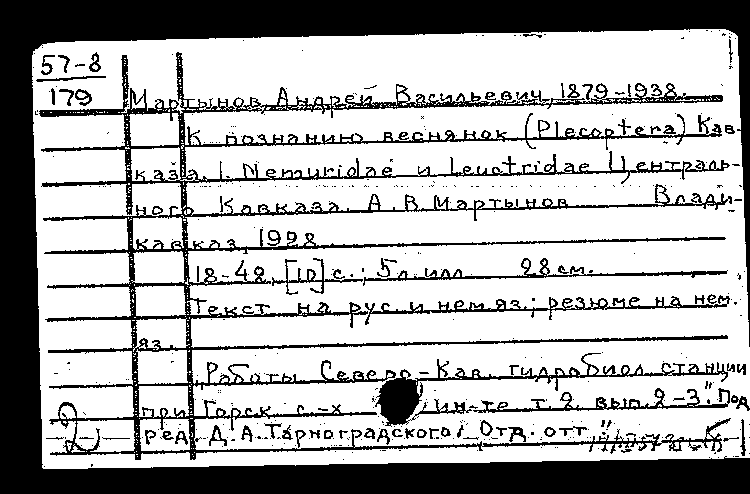 57-8
179
Мартынов, Андрей Васильевич, 1879-1938.
К познанию веснянок (Plecoptera) Кав-
каза. I. Nemuridae и Leuctridae Централь-
ного Кавказа. А.В. Мартынов Влади-
кавказ, 1928
18-42, [10] с.; 5 л. илл. 28 см.
Текст на рус. и нем. яз.; резюме на нем.
яз.
"Работы Северо-Кав. гидробиол. станции
при Горск. с.-х. ин-те т. 2. вып. 2-3". Под
ред. Д.А. Тарноградского. "Отд. отт."
2